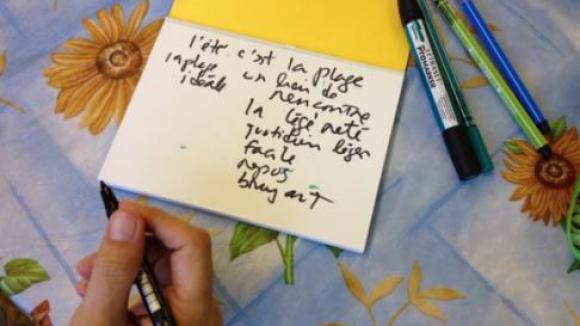 l'été c'est la plage
la plage
idéale
un lieu de
rencontre
la légèreté
quotidien léger
facile
repos
bruyant